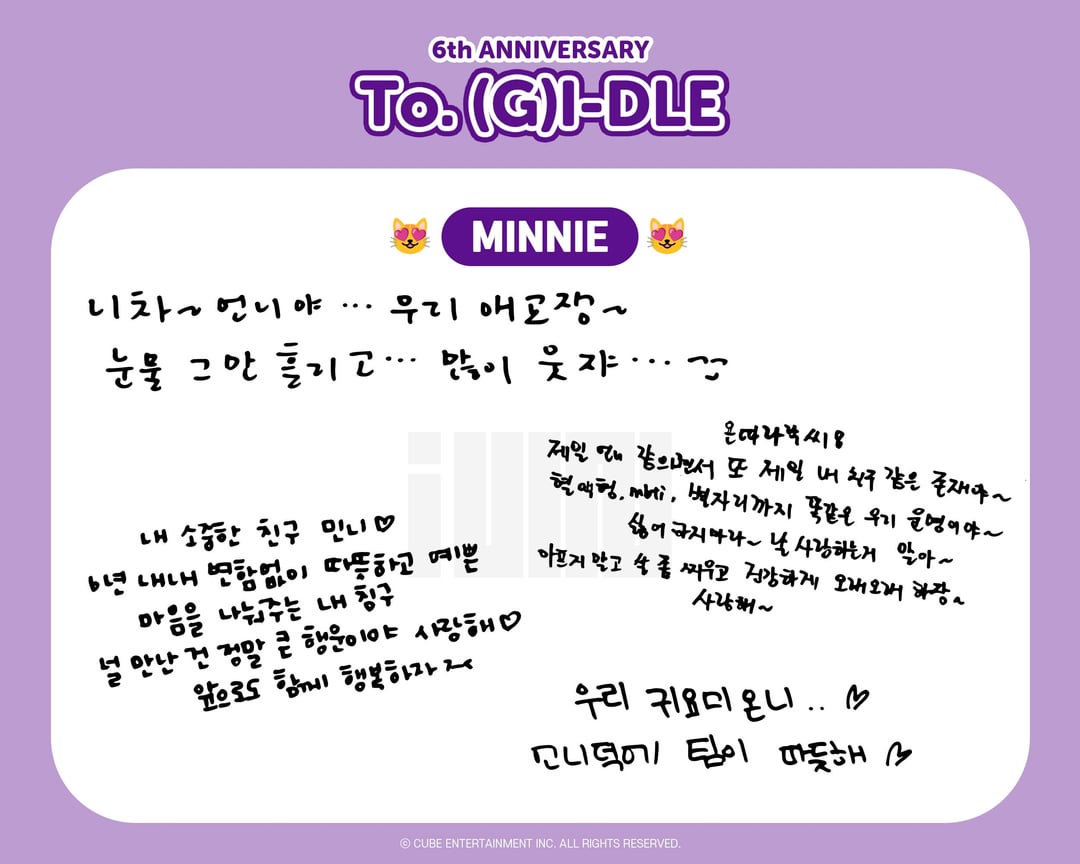 6th ANNIVERSARY
To. (G)I-DLE
MINNIE
니차~ 언니야 ... 우리 애교쟁~
눈물 그만 흘리고... 많이 웃쟈...
온따라락씨
제일 언니 같으면서 또 제일 내 친구 같은 존재야~
혈액형, mbti, 별자리까지 똑같은 우리 운명이야~
싫어 하지마라~ 날 사랑하는거 알아~
아프지 말고 살 좀 찌우고 건강하게 오래오래 하장~
사랑해~
내 소중한 친구 민니♡
6년 내내 변함없이 따뜻하고 예쁜
마음을 나눠주는 내 칭구
널 만난 건 정말 큰 행운이야 사랑해♡
앞으로도 함께 행복하자
우리 귀요미온니.. ♡
모니덕에 팀이 따듯해 ♡
© CUBE ENTERTAINMENT INC. ALL RIGHTS RESERVED.